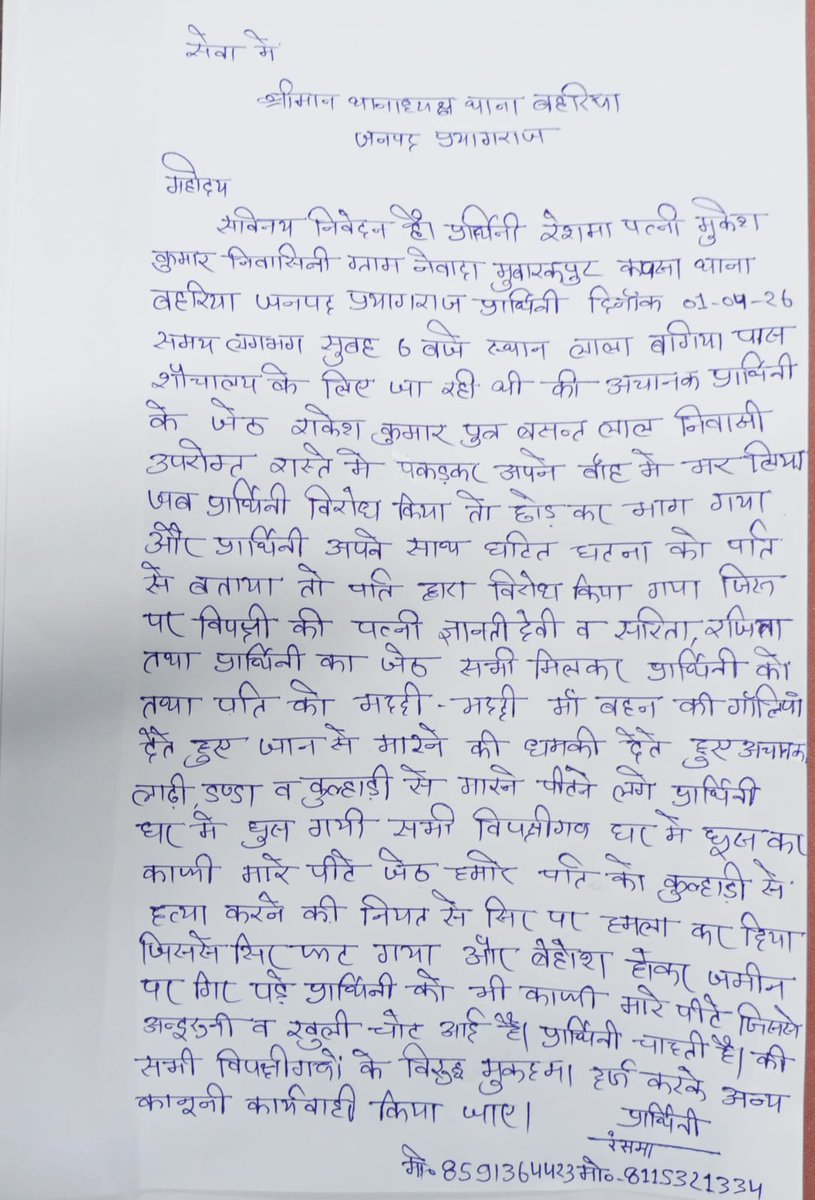 सेवा में
श्रीमान थानाध्यक्ष थाना बहरिया
जनपद प्रयागराज
महोदय
सविनय निवेदन है। प्रार्थिनी रेशमा पत्नी मुकेश
कुमार निवासिनी ग्राम नेवादा मुबारकपुर कपसा थाना
बहरिया जनपद प्रयागराज प्रार्थिनी दिनाँक 01-04-26
समय लगभग सुबह 6 बजे स्थान लाला बगिया पास
शौचालय के लिए जा रही थी की अचानक प्रार्थिनी
के जेठ राकेश कुमार पुत्र बसन्त लाल निवासी
उपरोक्त रास्ते मे पकड़कर अपने बाँह मे भर लिया
जब प्रार्थिनी विरोध किया तो छोड़ कर भाग गया
और प्रार्थिनी अपने साथ घटित घटना को पति
से बताया तो पति द्वारा विरोध किया गया जिस
पर विपक्षी की पत्नी ज्ञानती देवी व सरिता, रंजिता
तथा प्रार्थिनी का जेठ सभी मिलकर प्रार्थिनी को
तथा पति को भद्दी - भद्दी माँ बहन की गाँलियाँ
देते हुए जान से मारने की धमकी देते हुए अचानक
लाठी, डण्डा व कुल्हाड़ी से मारने पीटने लगे प्रार्थिनी
घर मे घुस गयी सभी विपक्षीगण घर मे घुस कर
काफी मारे पीटे जेठ हमारे पति को कुल्हाड़ी से
हत्या करने की नियत से सिर पर हमला कर दिया
जिससे सिर फट गया और बेहोश होकर जमीन
पर गिर पड़े प्रार्थिनी को भी काफी मारे पीटे जिससे
अन्दुरुनी व खुली चोट आई है। प्रार्थिनी चाहती है। की
सभी विपक्षीगणों के विरुद्ध मुकदमा दर्ज करके अन्य
कानूनी कार्यवाही किया जाए।
प्रार्थिनी
रेसमा
मो॰ 8591364423 मो॰-8115321334